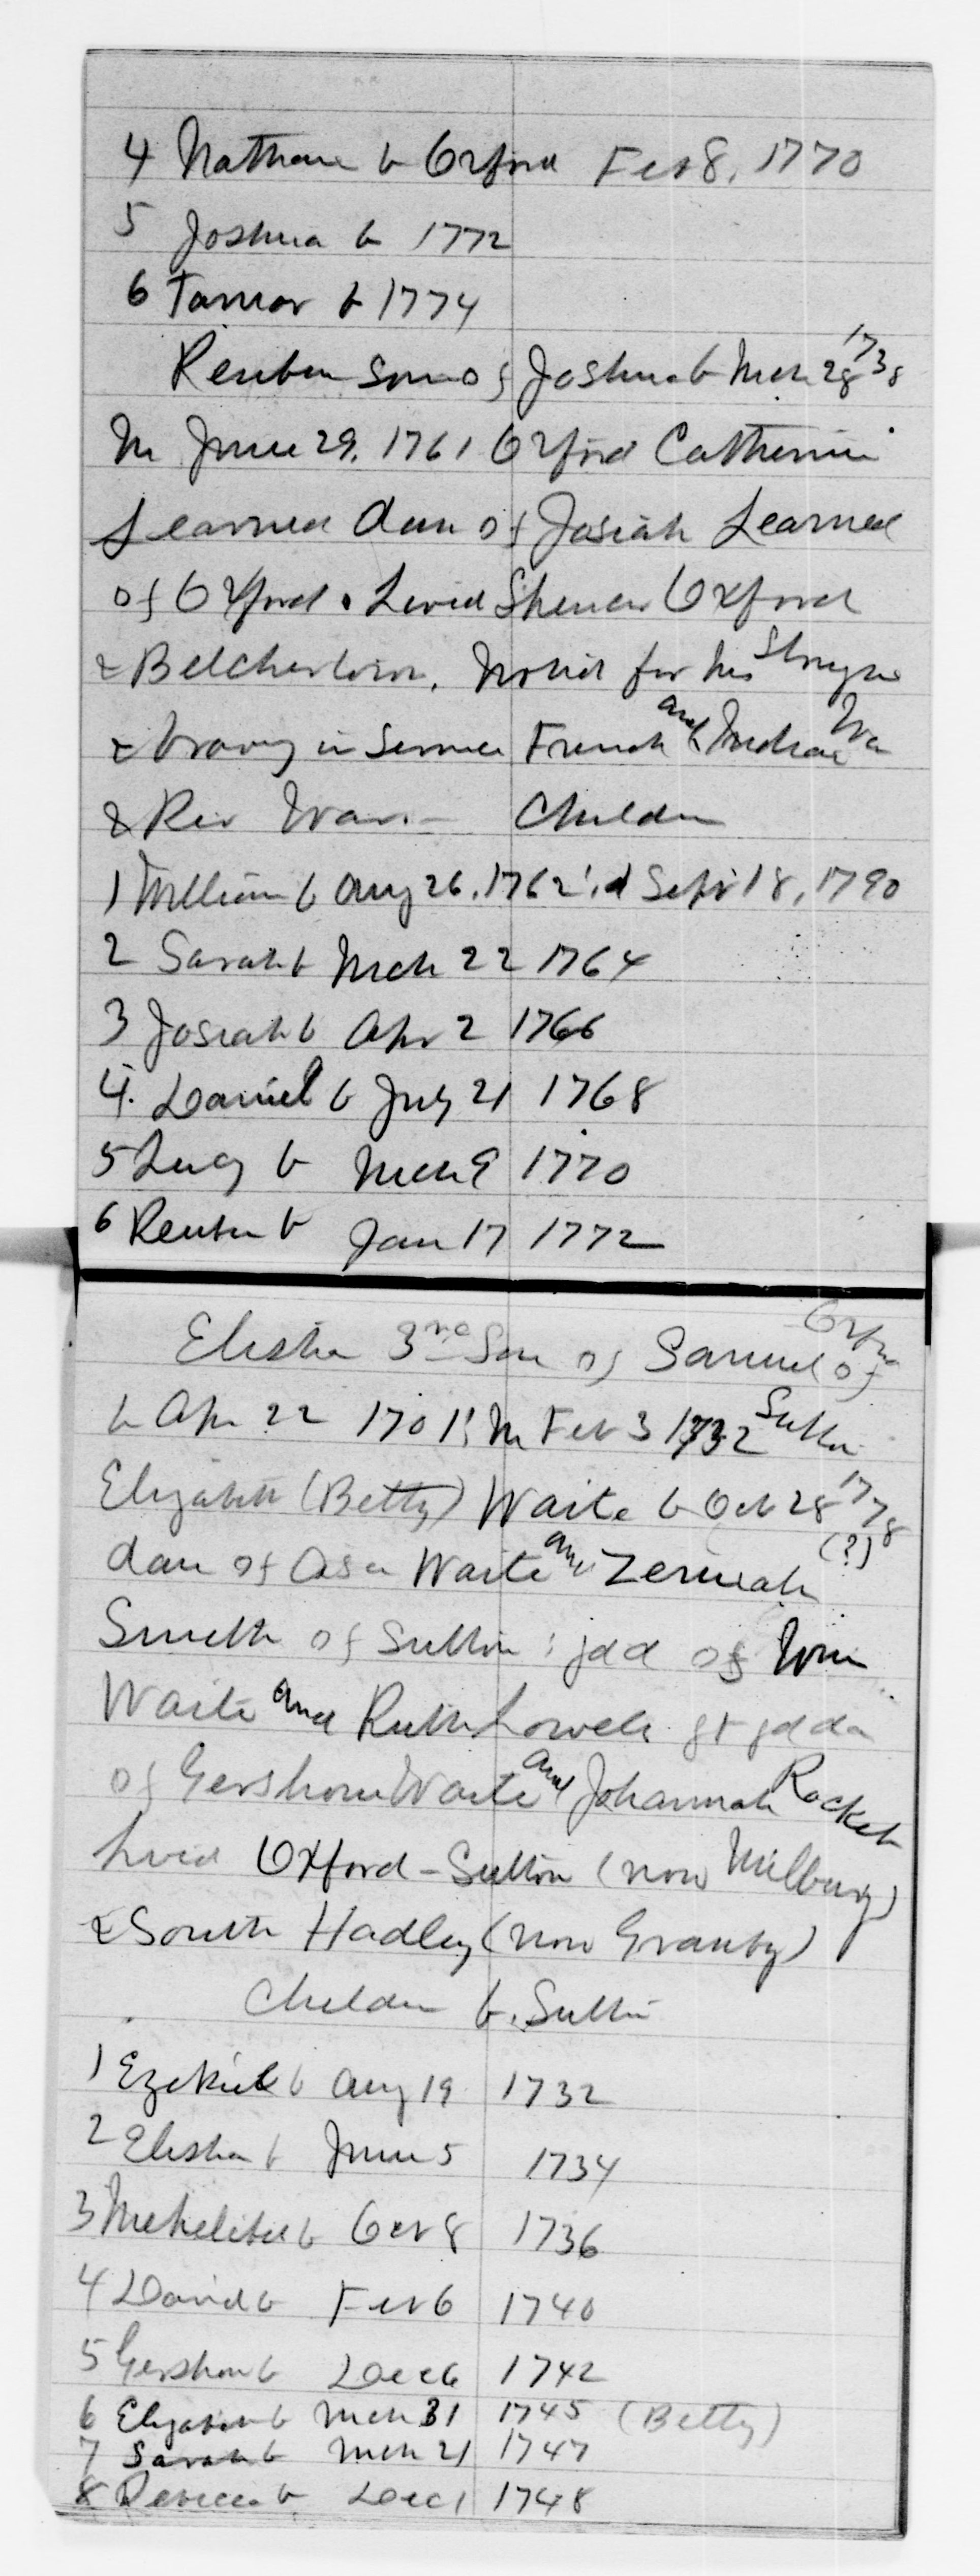 4 Nathan b Oxford Feb 8, 1770
5 Joshua b 1772
6 Tamar b 1774
Reuben son of Joshua b Mch 28 1738
M June 29, 1761 Oxford Catherine
Learned dau of Josiah Learned
of Oxford. Lived Oxford
& Belchertown. Noted for his
& bravery in service French and Indian War
& Rev War. - Children
1 William b Aug 26, 1762; d Sept 18, 1790
2 Sarah b Mch 22 1764
3 Josiah b Apr 2 1766
4. Daniel b July 21 1768
5 Lucy b Mch 9 1770
6 Reuben b Jan 17 1772
Elisha 3rd Son of Samuel of Oxford
b Apr 22 1701; M Feb 3 1732 Sutton
Elizabeth (Betty) Waite b Oct 28 1778
dau of Asa Waite and Zeruiah (?)
Smith of Sutton; gdd of Wm
Waite and Ruth Lowell gt gd da
of Gershom Waite and Johannah Rocket
Lived Oxford - Sutton (now Milbury)
& South Hadley (now Granby)
Children b. Sutton
1 Ezekiel b Aug 19 1732
2 Elisha b June 5 1734
3 Mehetibel b Oct 8 1736
4 David b Feb 6 1740
5 Gershom b Dec 6 1742
6 Elizabeth b Mch 31 1745 (Betty)
7 Sarah b Mch 21 1747
8 Rebecca b Dec 1 1748